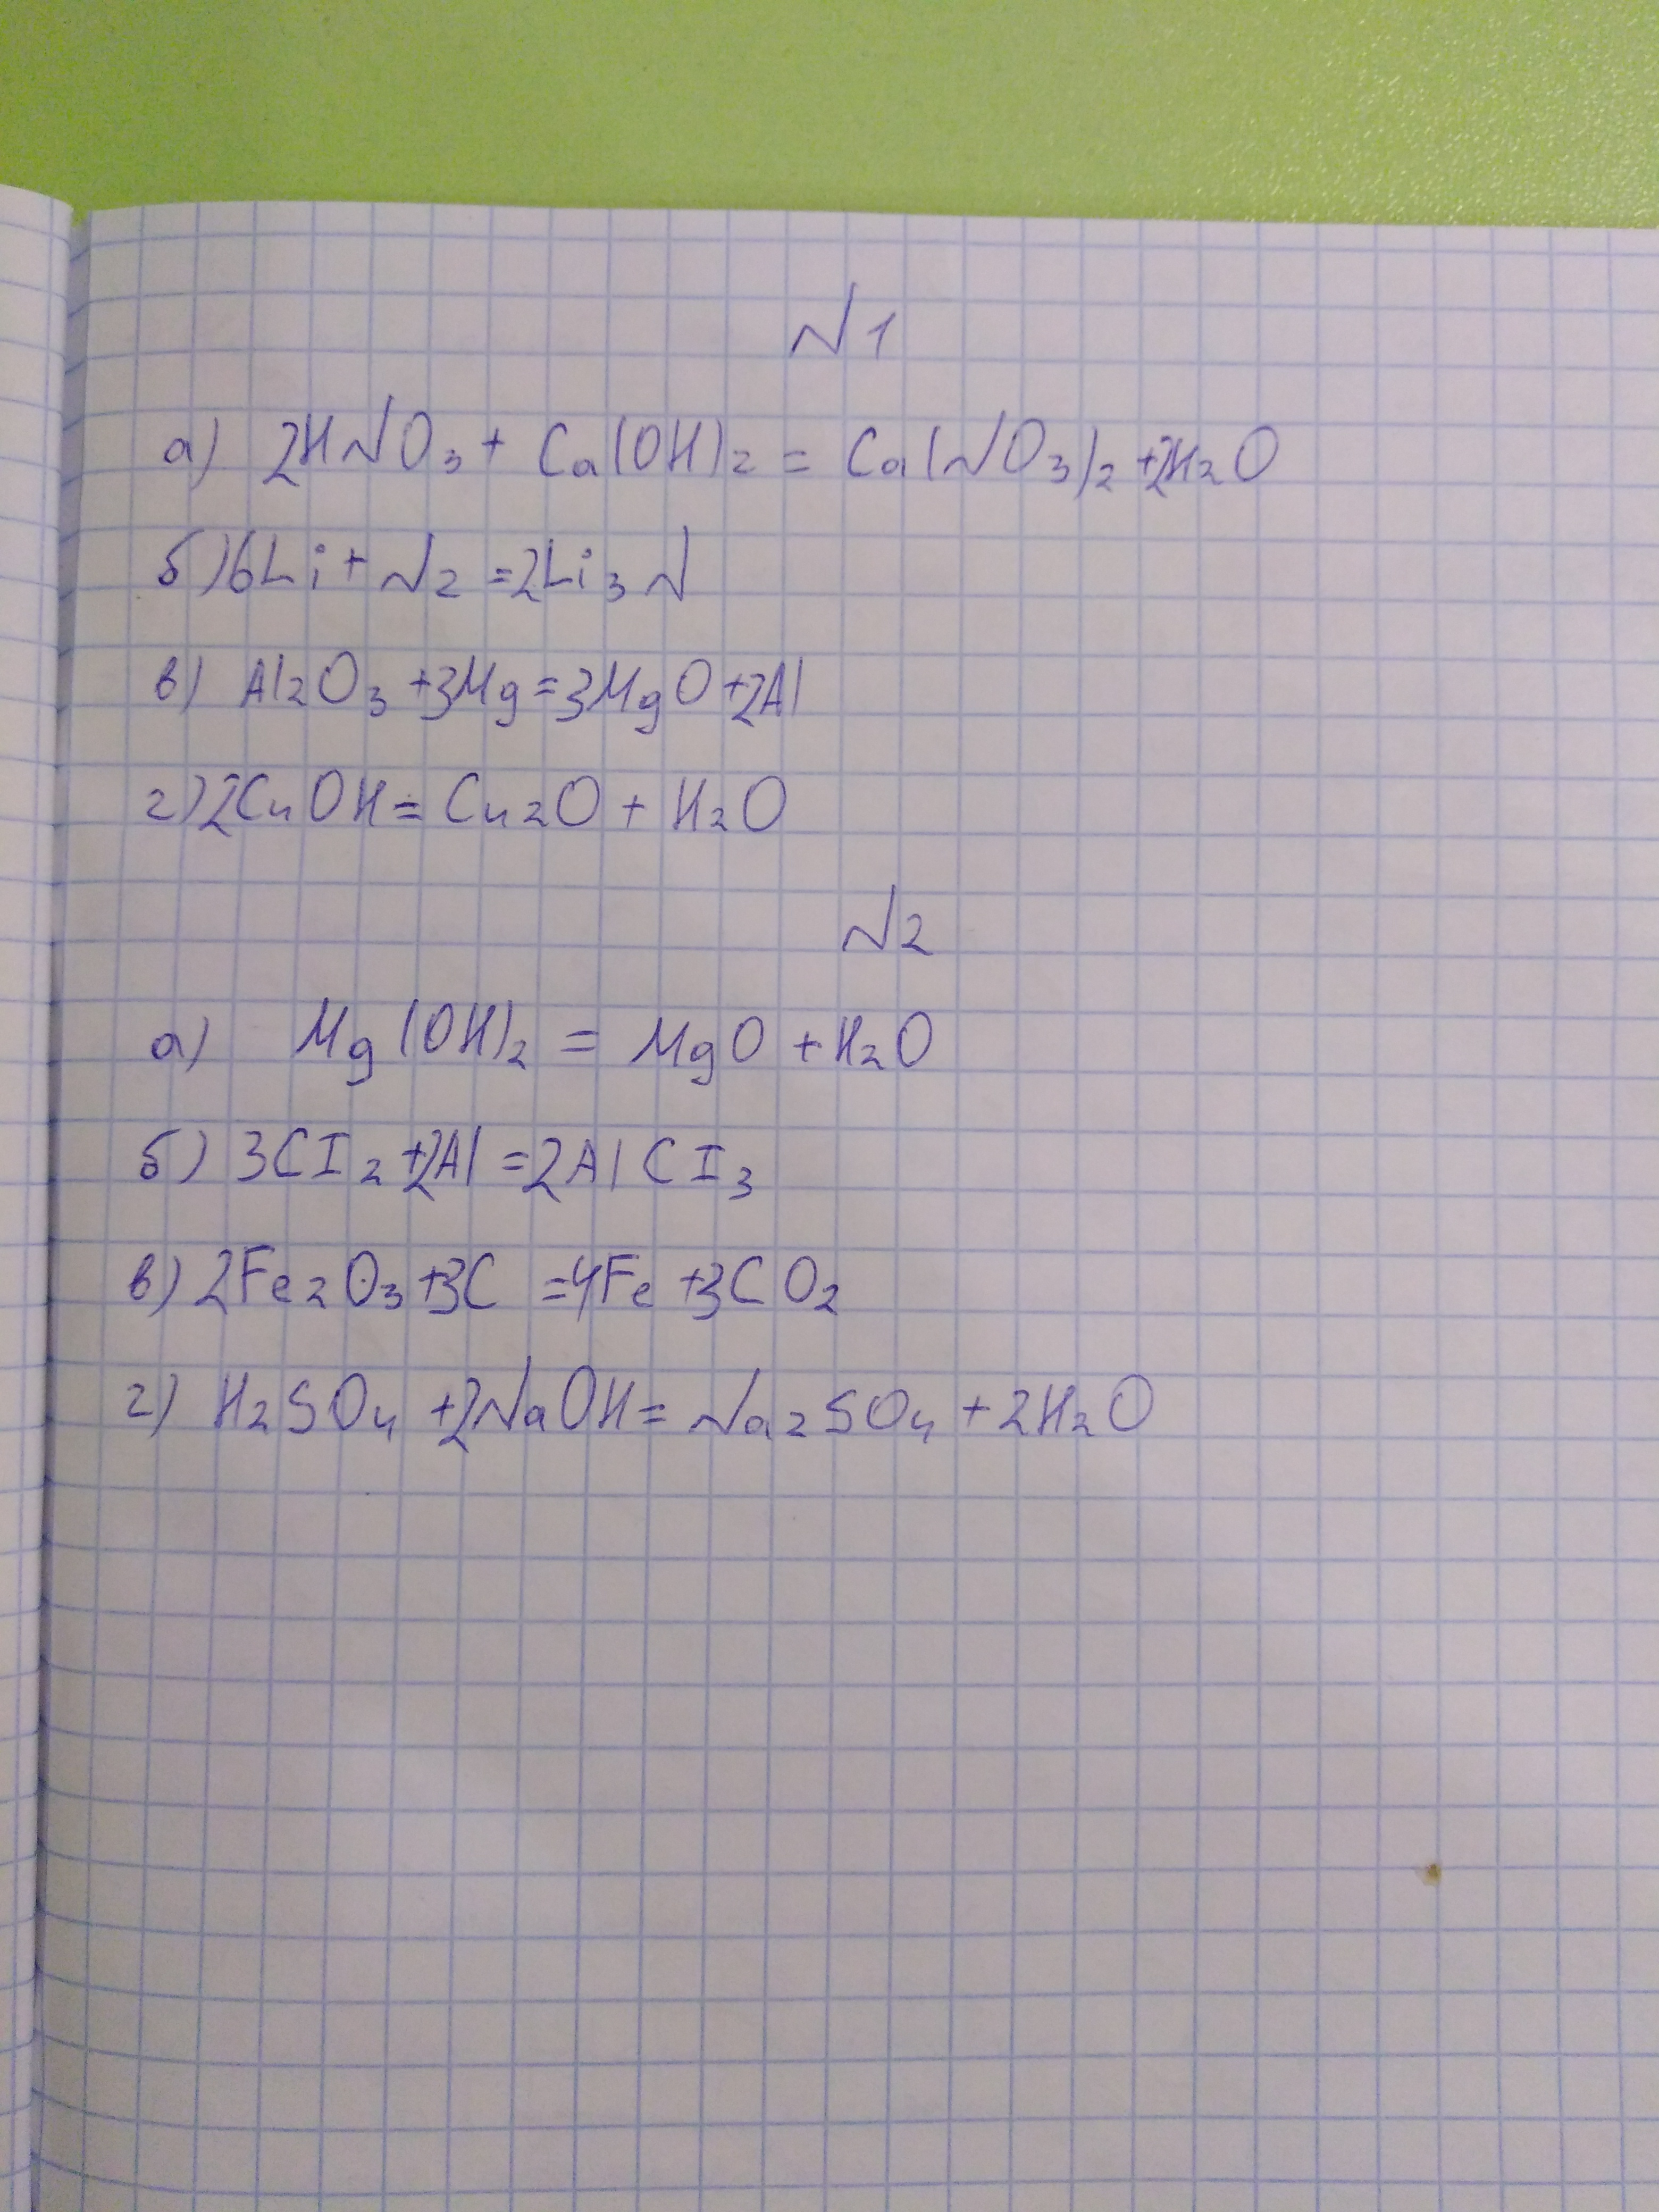 N1
а) 2HNO₃ + Ca(OH)₂ = Ca(NO₃)₂ + 2H₂O
б) 6Li + N₂ = 2Li₃N
в) Al₂O₃ + 3Mg = 3MgO + 2Al
г) 2CuOH = Cu₂O + H₂O
N2
а) Mg(OH)₂ = MgO + H₂O
б) 3CI₂ + 2Al = 2AlCI₃
в) 2Fe₂O₃ + 3C = 4Fe + 3CO₂
г) H₂SO₄ + 2NaOH = Na₂SO₄ + 2H₂O